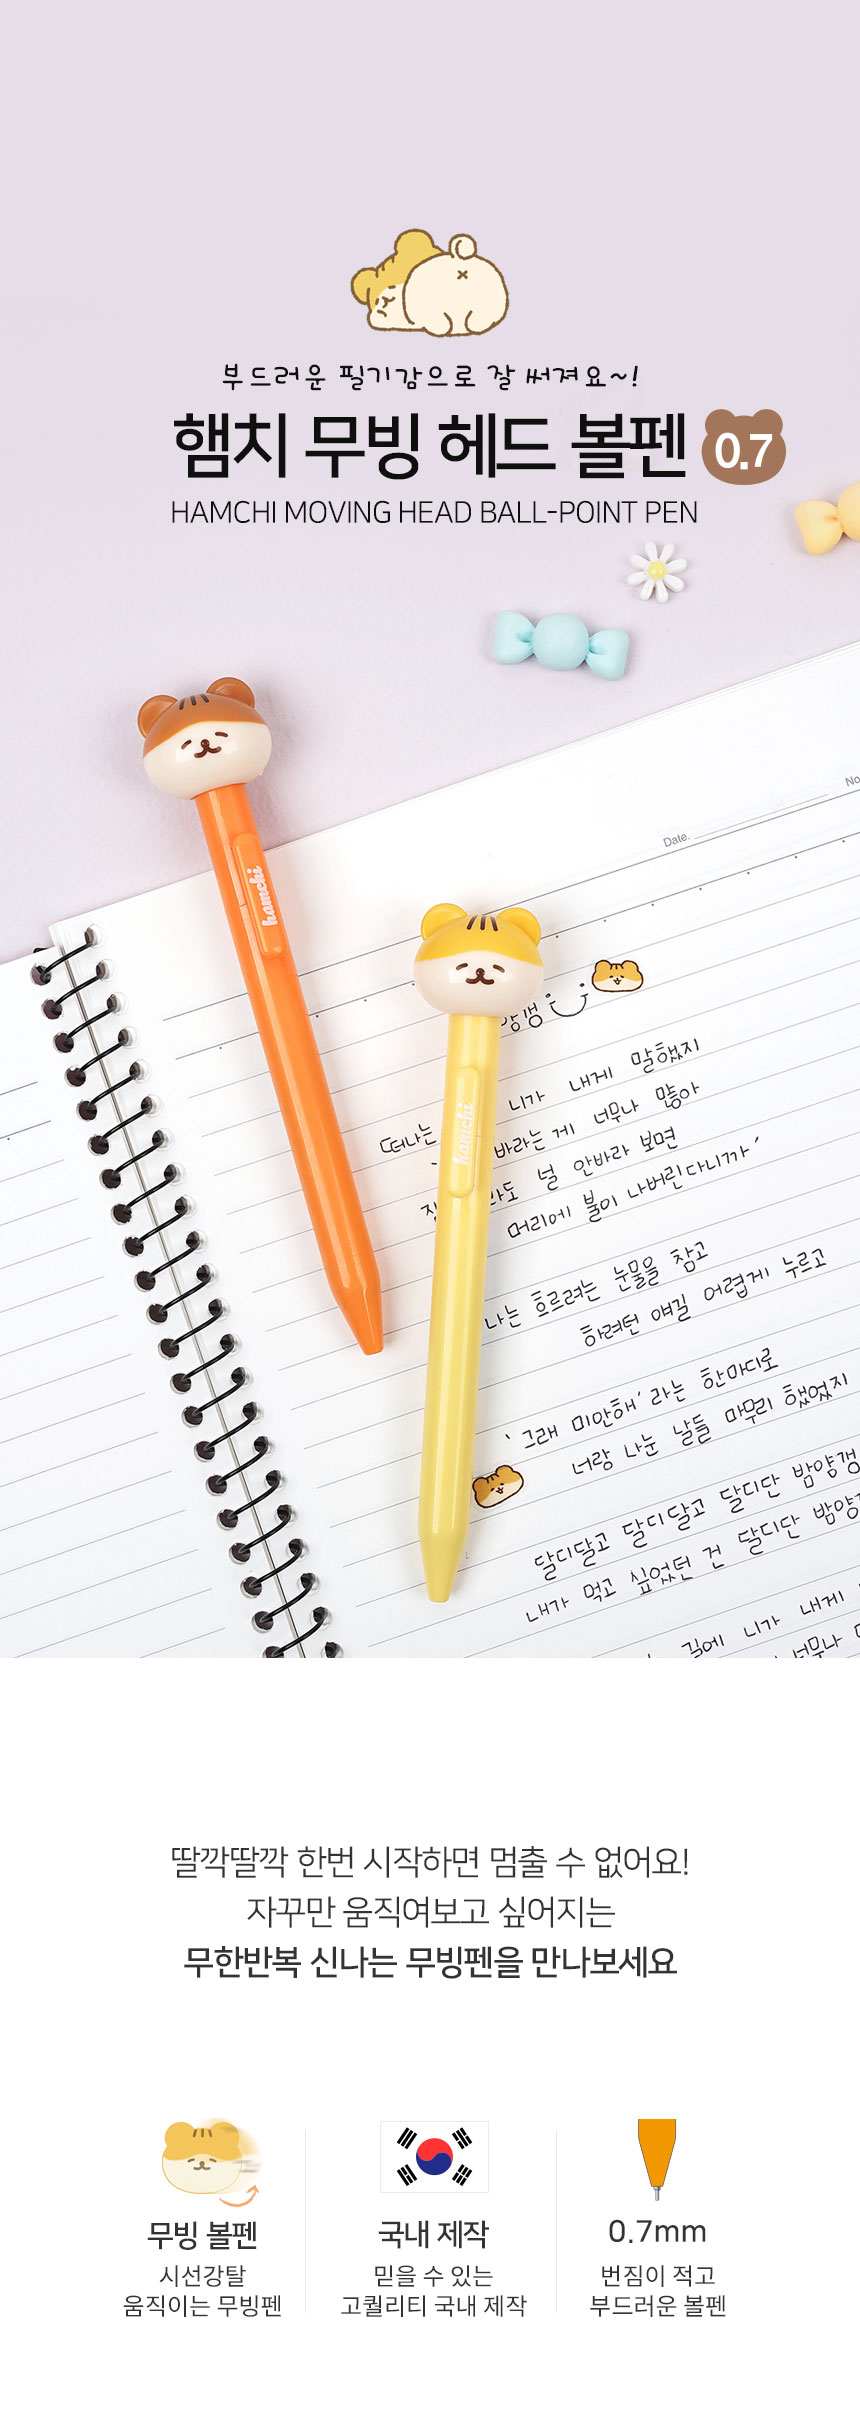 부드러운 필기감으로 잘 써져요~!
햄치 무빙 헤드 볼펜 0.7
HAMCHI MOVING HEAD BALL-POINT PEN
No
Date.
hamchi
hamchi
떠나는 니가 내게 말했지
바라는 게 너무나 많아
널 안바라 보면
머리에 불이 나버린다니까'
나는 흐르려는 눈물을 참고
하려던 얘길 어렵게 누르고
'그래 미안해'라는 한마디로
너랑 나눈 날들 마무리 했었지
달디달고 달디달고 달디단 밤양갱
내가 먹고 싶었던 건 달디단 밤양
길에 니가 내게
너무나
딸깍딸깍 한번 시작하면 멈출 수 없어요!
자꾸만 움직여보고 싶어지는
무한반복 신나는 무빙펜을 만나보세요
무빙 볼펜
시선강탈
움직이는 무빙펜
국내 제작
믿을 수 있는
고퀄리티 국내 제작
0.7mm
번짐이 적고
부드러운 볼펜